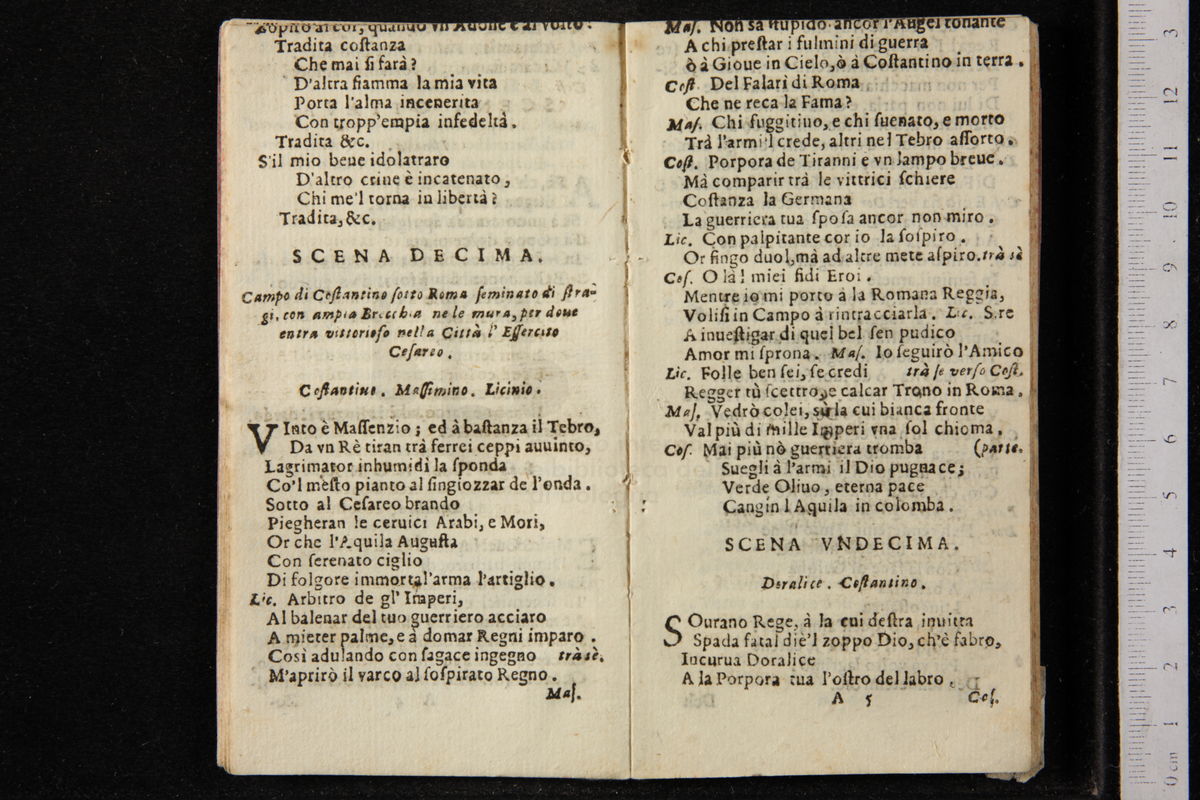 Zoppito al cor, quando vn Adone è al volto?
Tradita coſtanza
Che mai ſi farà?
D'altra fiamma la mia vita
Porta l'alma incenerita
Con tropp'empia infedeltà.
Tradita &c.
S'il mio bene idolatrato
D'altro crine è incatenato,
Chi me'l torna in libertà?
Tradita, &c.
SCENA DECIMA.
Campo di Coſtantino ſotto Roma ſeminato di ſtra-
gi, con ampia Brecchia ne le mura, per doue
entra vittorioſo nella Città l' Eſſercito
Ceſareo.
Coſtantino. Maſſimino. Licinio.
VInto è Maſſenzio; ed à baſtanza il Tebro,
Da vn Rè tiran trà ferrei ceppi auuinto,
Lagrimator inhumidì la ſponda
Co'l meſto pianto al ſingiozzar de l'onda.
Sotto al Ceſareo brando
Piegheran le ceruici Arabi, e Mori,
Or che l'Aquila Auguſta
Con ſerenato ciglio
Di folgore immortal'arma l'artiglio.
Lic. Arbitro de gl' Imperi,
Al balenar del tuo guerriero acciaro
A mieter palme, e à domar Regni imparo.
Così adulando con ſagace ingegno trà sè.
M'aprirò il varco al ſoſpirato Regno.
Maſ.
Maſ. Non sà ſtupido ancor l'Augel tonante
A chi preſtar i fulmini di guerra
ò à Gioue in Cielo, ò à Coſtantino in terra.
Coſt. Del Falari di Roma
Che ne reca la Fama?
Maſ. Chi fuggitiuo, e chi ſuenato, e morto
Trà l'armi'l crede, altri nel Tebro aſſorto.
Coſt. Porpora de Tiranni e vn lampo breue.
Mà comparir trà le vittrici ſchiere
Coſtanza la Germana
La guerriera tua ſpoſa ancor non miro.
Lic. Con palpitante cor io la ſoſpiro.
Or fingo duol, mà ad altre mete aſpiro. trà sè
Coſ. O là! miei fidi Eroi.
Mentre io mi porto à la Romana Reggia,
Voliſi in Campo à rintracciarla. Lic. Sire
A inueſtigar di quel bel ſen pudico
Amor mi ſprona. Maſ. Io ſeguirò l'Amico
Lic. Folle ben ſei, ſe credi trà ſe verſo Coſt.
Regger tù ſcettro, e calcar Trono in Roma.
Maſ. Vedrò colei, sù la cui bianca fronte
Val più di mille Imperi vna ſol chioma.
Coſ. Mai più nò guerriera tromba (parte.
Suegli à l'armi il Dio pugnace;
Verde Oliuo, eterna pace
Cangin l Aquila in colomba.
SCENA VNDECIMA.
Doralice. Coſtantino.
SOurano Rege, à la cui deſtra inuitta
Spada fatal diè'l zoppo Dio, ch'è fabro,
Incurua Doralice
A la Porpora tua l'oſtro del labro.
A 5 Coſ.
0 cm 1 2 3 4 5 6 7 8 9 10 11 12 13